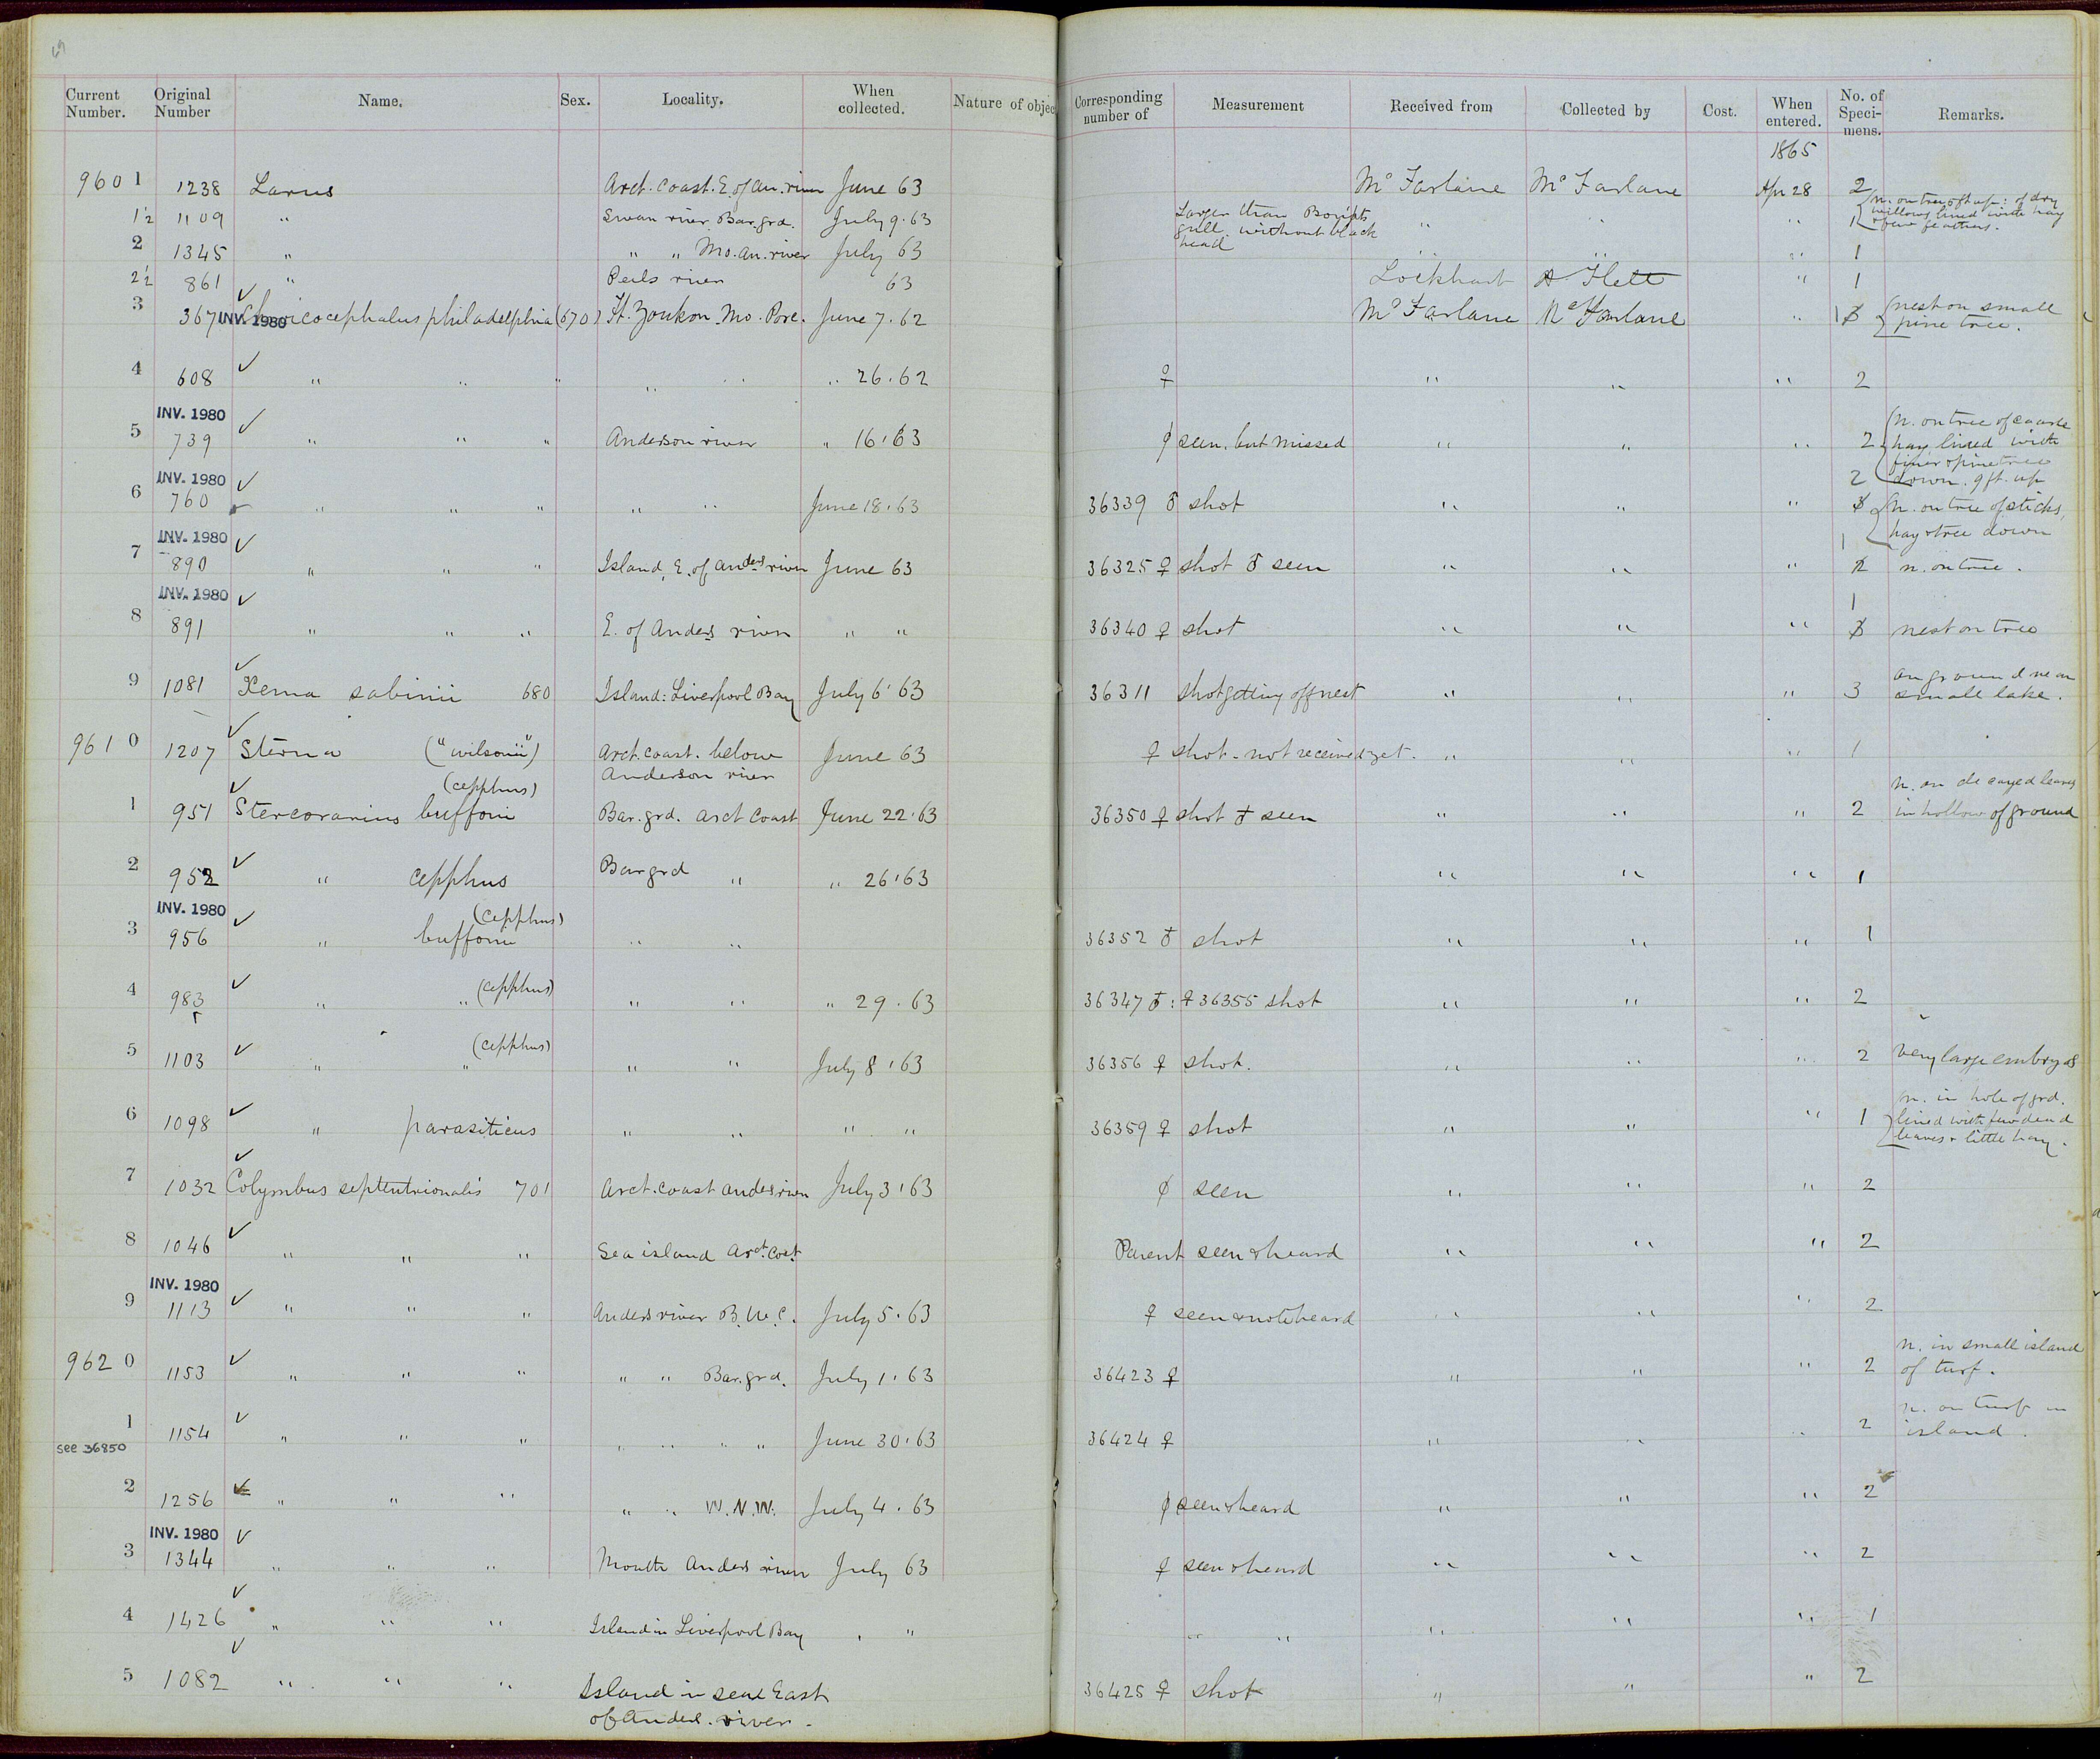 Current Number. Original Number Name. Sex. Locality. When collected. Nature of objec Corresponding number of Measurement Received from Collected by Cost. When entered. No. of Specimens. Remarks.
1865
9601 1238 Larus Arct. coast. E. of An. river June 63 McFarlane McFarlane Apr 28 2
1½ 1109 " Swan river Bar. grd. July 9. 63 Larger than Bonip's gull without black head " " " 1 n. on tree 8 ft up: of dry willows lined with hay & few feathers.
2 1345 " " " Mo. An. river July 63 " " " 1
2½ 861 " Peels river 63 Lockhart A Flett " 1
3 367 INV. 1980 Chroicocephalus philadelphia (670) Ft. Youkon. Mo. Porc. June 7. 62 McFarlane McFarlane " 1 3 nest on small pine tree.
4 608 ✓ " " " " " " 26. 62 ♀ " " " 2
INV. 1980
5 739 ✓ " " " Anderson river " 16. 63 ♀ seen, but missed " " " 2 n. on tree of coarse hay lined with finer & pine tree down. 9 ft. up
INV. 1980
6 760 ✓ " " " " " June 18. 63 36339 ♂ shot " " " 2 3 n. on tree of sticks, hay & tree down
INV. 1980
7 890 ✓ " " " Island, E. of Anders river June 63 36325 ♀ shot ♂ seen " " " 1 2 n. on tree.
INV. 1980
8 891 ✓ " " " E. of Anders river " " 36340 ♀ shot " " " 1 3 nest on tree
9 1081 ✓ Xema sabinii 680 Island: Liverpool Bay July 6. 63 36311 shot getting off nest " " " 3 on ground near small lake.
9610 1207 ✓ Sterna ("wilsonii") Arct. coast. below Anderson river June 63 ♀ shot - not received yet. " " " 1
1 951 ✓ Stercorarius buffonii (cepphus) Bar. grd. Arct Coast June 22. 63 36350 ♀ shot ♂ seen " " " 2 n. on decayed leaves in hollow of ground
2 952 ✓ " cepphus Bar grd " " 26. 63 " " " 1
INV. 1980
3 956 ✓ " buffonii (cepphus) " " 36352 ♂ shot " " " 1
4 983 ✓ " " (cepphus) " " " 29. 63 36347 ♂: ♀ 36355 shot " " " 2
5 1103 ✓ " " (cepphus) " " July 8. 63 36356 ♀ shot. " " " 2 Very large embryos
6 1098 ✓ " parasiticus " " " " 36359 ♀ shot " " " 1 n. in hole of grd. lined with few dead leaves & little hay.
7 1032 ✓ Colymbus septentrionalis 701 Arct. coast Anders river July 3. 63 ♀ seen " " " 2
8 1046 ✓ " " " Sea island Arct. Coast Parent seen & heard " " " 2
INV. 1980
9 1113 ✓ " " " Anders river B. W. C. July 5. 63 ♀ seen & not heard " " " 2
9620 1153 ✓ " " " " " Bar. grd. July 1. 63 36423 ♀ " " " 2 n. in small island of turf.
1 1154 ✓ " " " " " " " June 30. 63 36424 ♀ " " " 2 n. on turf in island.
see 36850
2 1256 ✓ " " " " " W. N. W. July 4. 63 ♀ seen & heard " " " 2
INV. 1980
3 1344 ✓ " " " Mouth Anders river July 63 ♀ seen & heard " " " 2
4 1426 ✓ " " " Island in Liverpool Bay " " " " " " " 1
5 1082 ✓ " " " Island in sea East of Anders. river. 36425 ♀ shot " " " 2